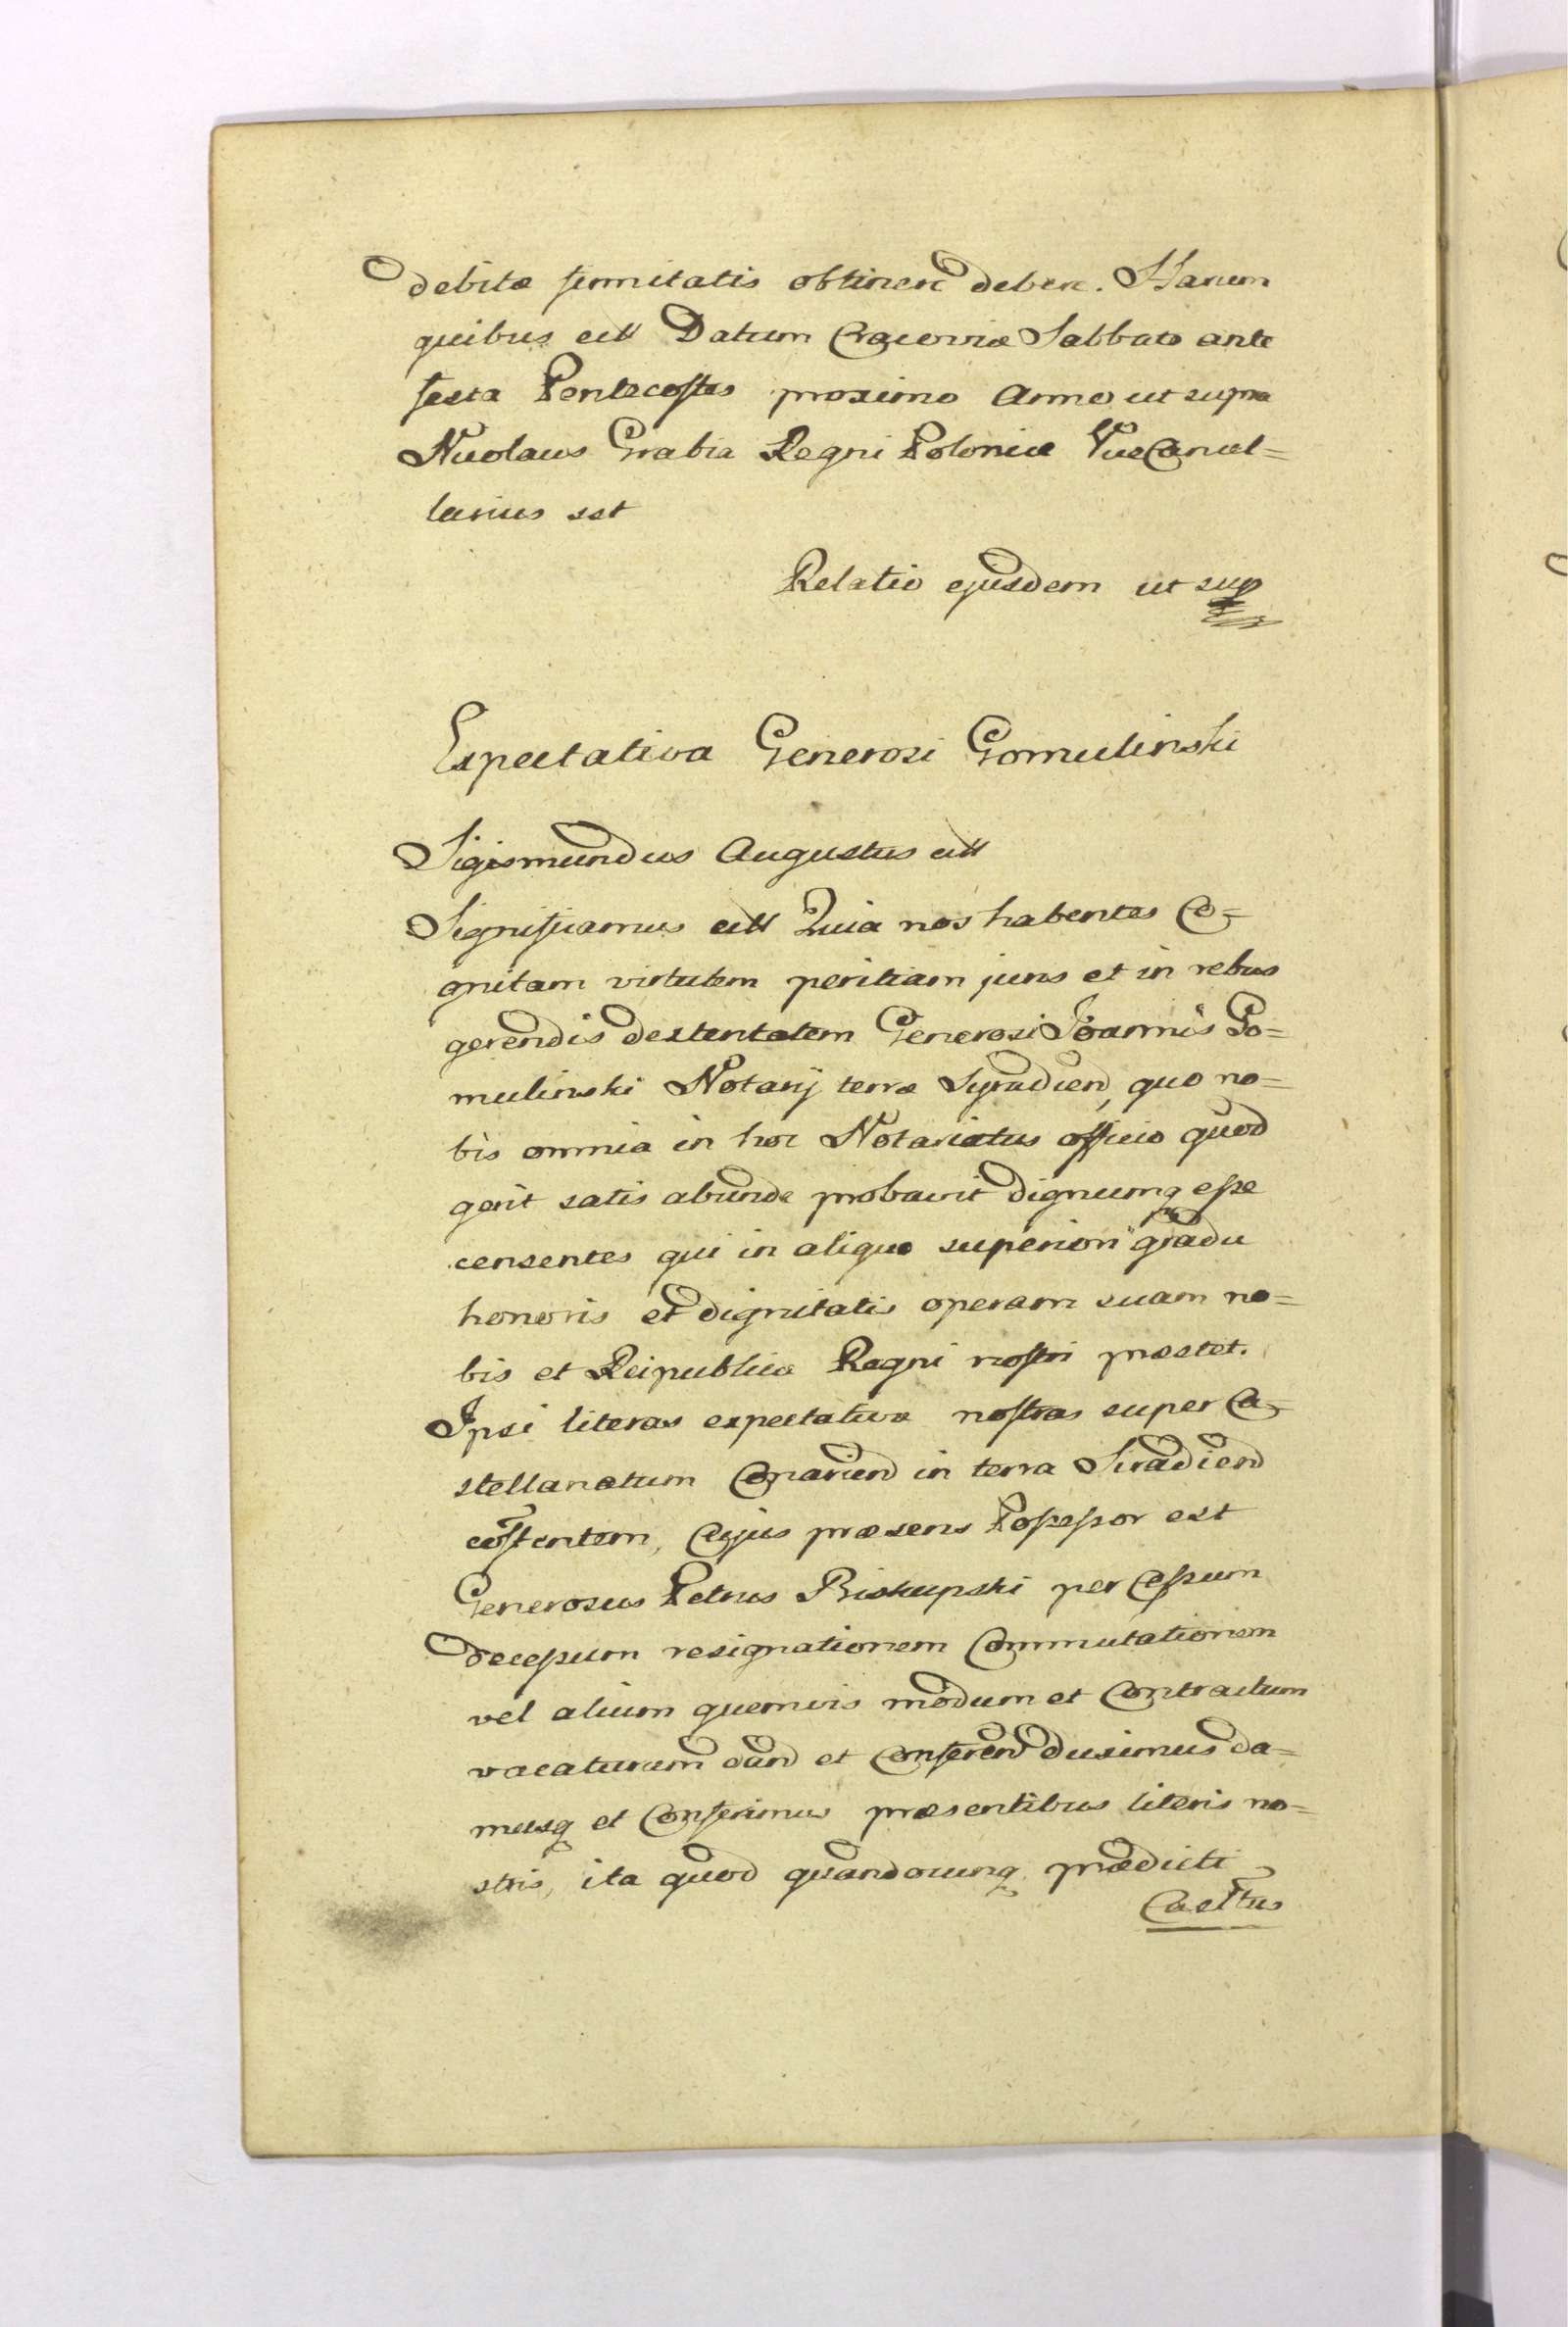 debitæ firmitatis obtinere debere. Harum
quibus ett Datum Cracoviæ Sabbato ante
festa Pentecostes proximo Anno ut supra
Nicolaus Grabia Regni Poloniæ ViceCancel=
larius sst
Relatio ejusdem ut sup
Expectativa Generosi Gomulinski
Sigismundus Augustus ett
Significamus ett Quia nos habentes Co=
gnitam virtutem peritiam juris et in rebus
gerendis dexteritatem Generosi Joannis Go=
mulinski Notarij terræ Syradien, quo no=
bis omnia in hoc Notariatus officio quod
gerit satis abunde probavit dignumq esse
censentes qui in aliquo superiori gradu
honoris et dignitatis operam suam no=
bis et Reipublicæ Regni nostri præstet.
Ipsi literas expectativæ nostras super Ca=
stellanatum Conarien in terra Siradien
costentem, Cujus præsens Possessor est
Generosus Petrus Biskupski per Cessum
decessum resignationem Commutationem
vel alium quemvis modum et Contractum
vacaturum dand et Conferend duximus da=
musq et Conferimus præsentibus literis no=
stris, ita quod quandocunq prædicti
Casttus